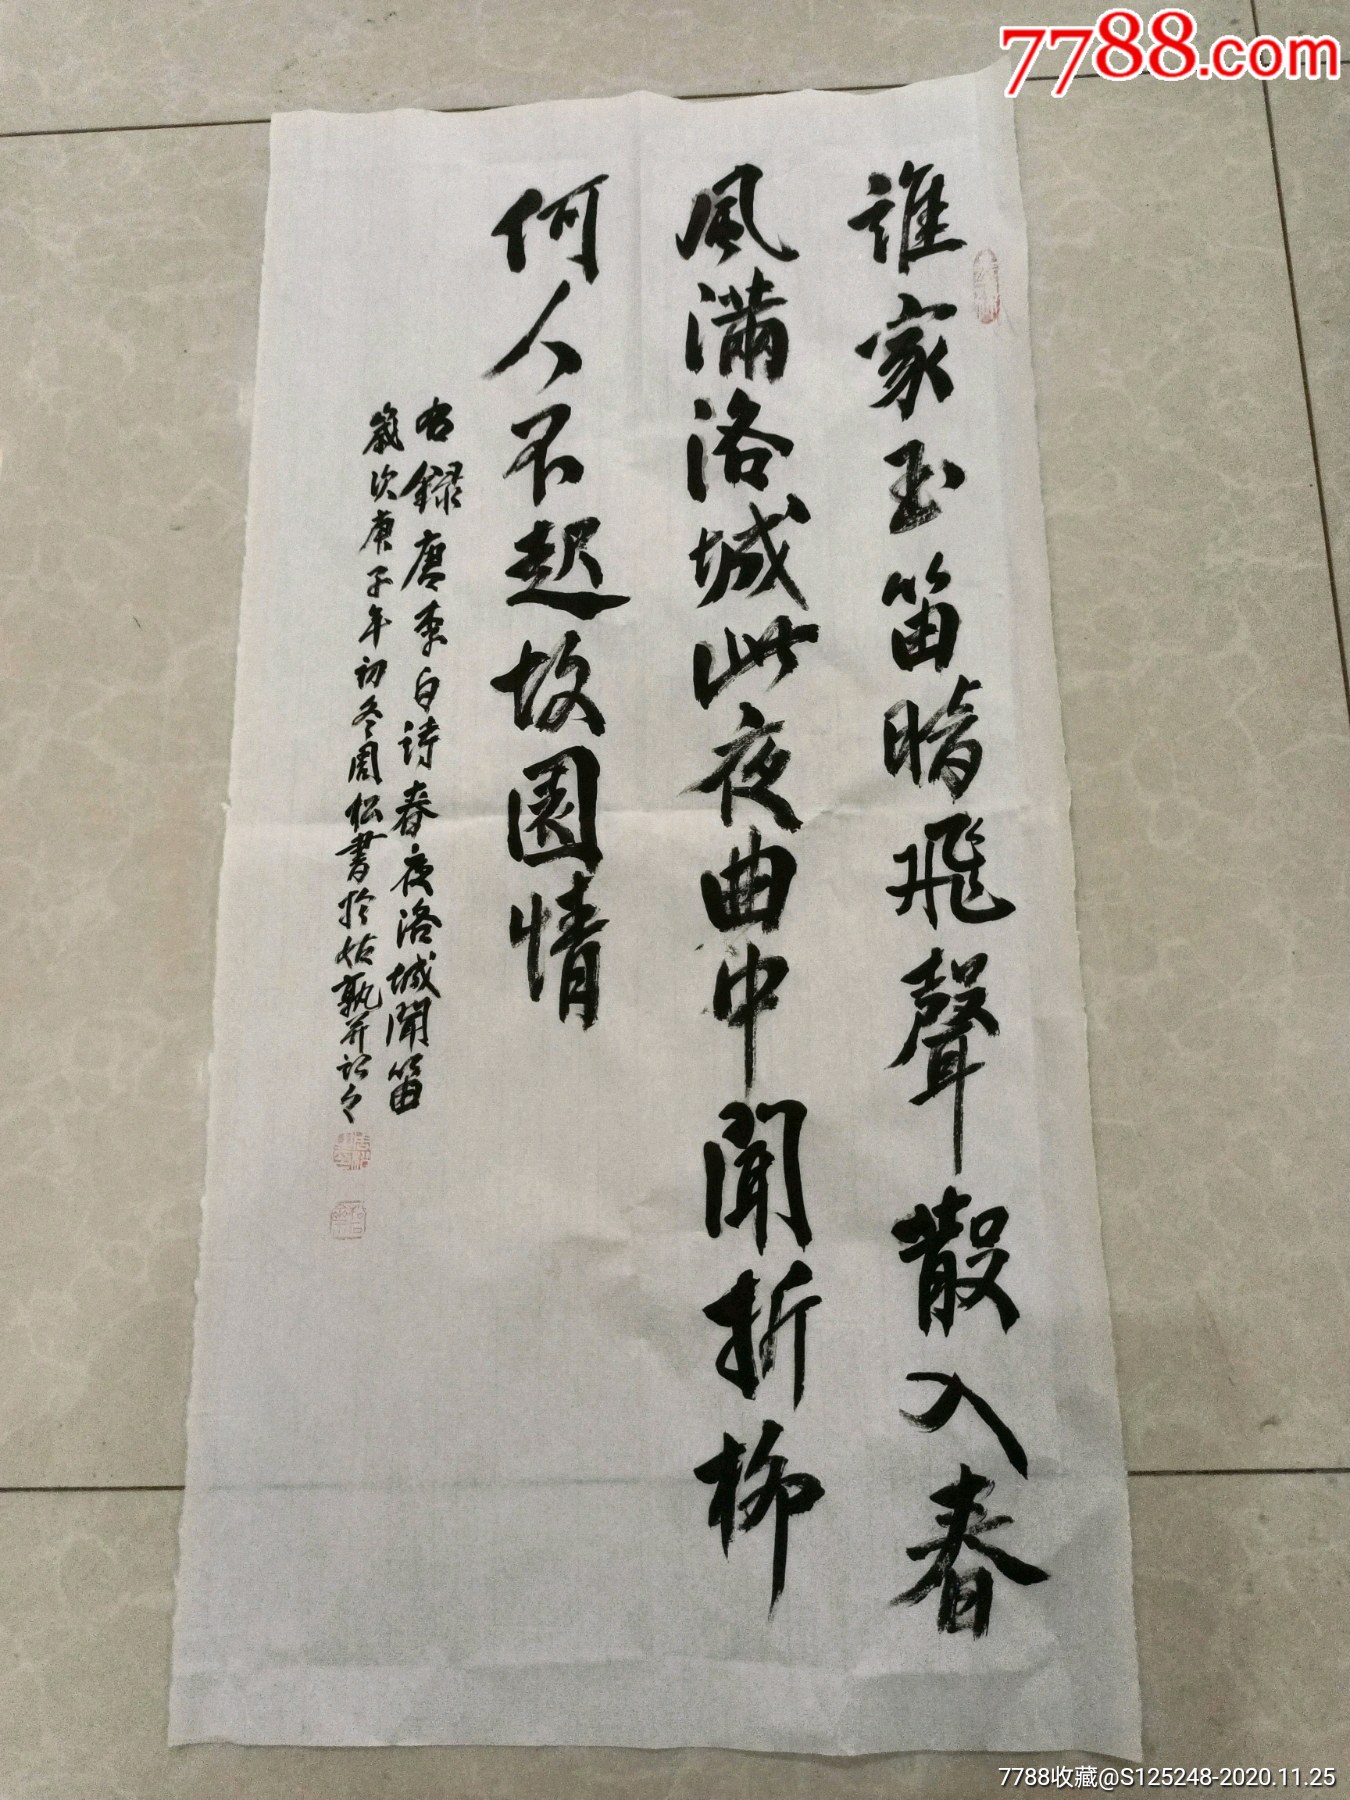 7788.com
誰家玉笛暗飛聲散入春
風滿洛城此夜曲中聞折柳
何人不起故園情
右錄唐李白詩春夜洛城聞笛
歲次庚子年初冬周松書於姑孰并記之
7788收藏@S125248-2020.11.25